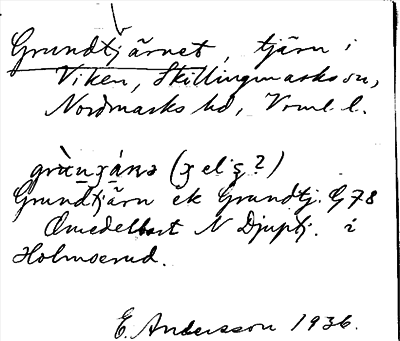 Grundtjärnet, tjärn i
Viken, Skillingmarks sn,
Nordmarks hd, Vrml. l.
(ʒ el. ʒ ?)
Grundtjärn ek Grundtj. G 78
Omedelbart N Djuptj. i
Holmserud.
E. Andersson 1936.